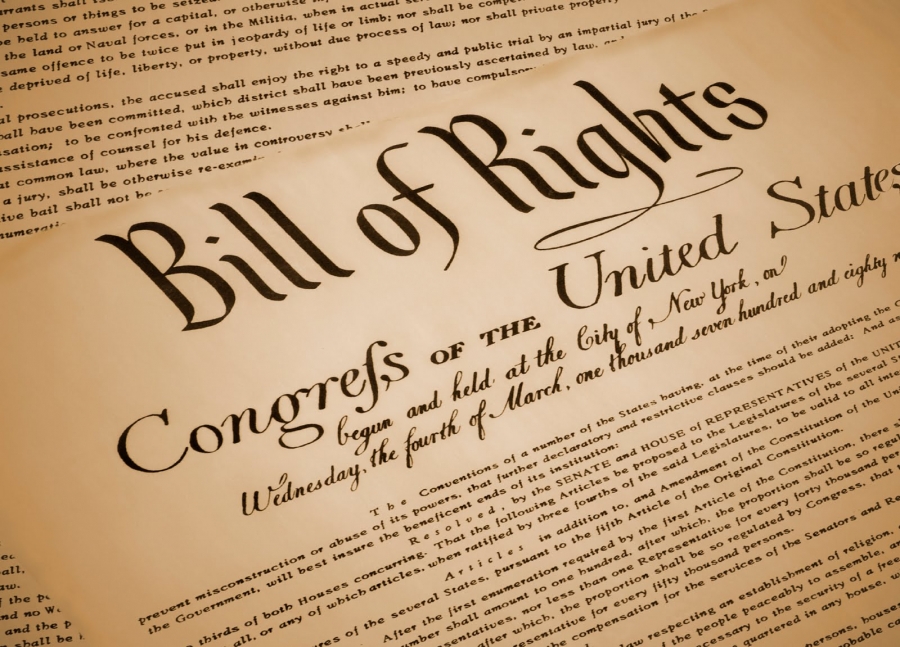 rrants shall
persons or things to be seized.
be held to answer for a capital, or otherwise
the land or Naval forces, or in the Militia, when in actual
same offence to be twice put in jeopardy of life or limb; nor shall be
deprived of life, liberty, or property, without due process of law; nor shall private property
al prosecutions, the accused shall enjoy the right to a speedy and public trial by an impartial jury of the
hall have been committed, which district shall have been previously ascertained by law,
sation; to be confronted with the witnesses against him; to have compulsory
assistance of counsel for his defence.
at common law, where the value in controversy shall
a jury, shall be otherwise re-exam
ive bail shall not be
numerati
Bill of Rights
Congreſs OF THE United States
begun and held at the City of New York, on
Wednesday, the fourth of March, one thousand seven hundred and eighty n
The Conventions of a number of the States having, at the time of their adopting the C
prevent misconstruction or abuse of its powers, that further declaratory and restrictive clauses should be added: And as
the Government, will best insure the beneficent ends of its institution:
Resolved, by the SENATE and HOUSE of REPRESENTATIVES of the UNIT
thirds of both Houses concurring. That the following Articles be proposed to the Legislatures of the several S
all, or any of which articles, when ratified by three fourths of the said Legislatures, to be valid to all inte
Articles in addition to, and Amendment of the Constitution of the Un
res of the several States, pursuant to the fifth Article of the Original Constitution.
After the first enumeration required by the first Article of the Constitution, there s
mber shall amount to one hundred, after which, the proportion shall be so regul
sentatives, nor less than one Representative for every forty thousand per
after which, the proportion shall be so regulated by Congress, that t
resentative for every fifty thousand persons.
the compensation for the services of the Senators and Re
law respecting an establishment of religion,
of the people peaceably to assemble, an
ecessary to the security of a free
quartered in any house, w
persons, house
bable ca
all,
aw.
of the p
nd no W
and the p
shall be